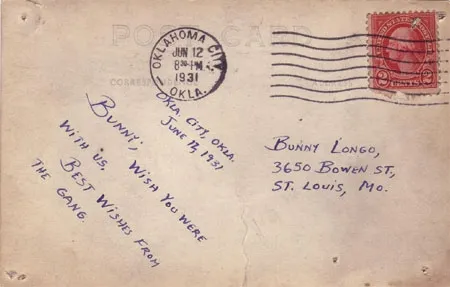 POST CARD
CORRESPONDENCE
ADDRESS
OKLAHOMA CITY
JUN 12
8 30 PM
1931
OKLA.
2 CENTS 2
OKLA CITY, OKLA.
June 12, 1931
BUNNY,
WISH YOU WERE
WITH US,
BEST WISHES FROM
THE GANG.
BUNNY LONGO,
3650 BOWEN ST,
ST. LOUIS, MO.